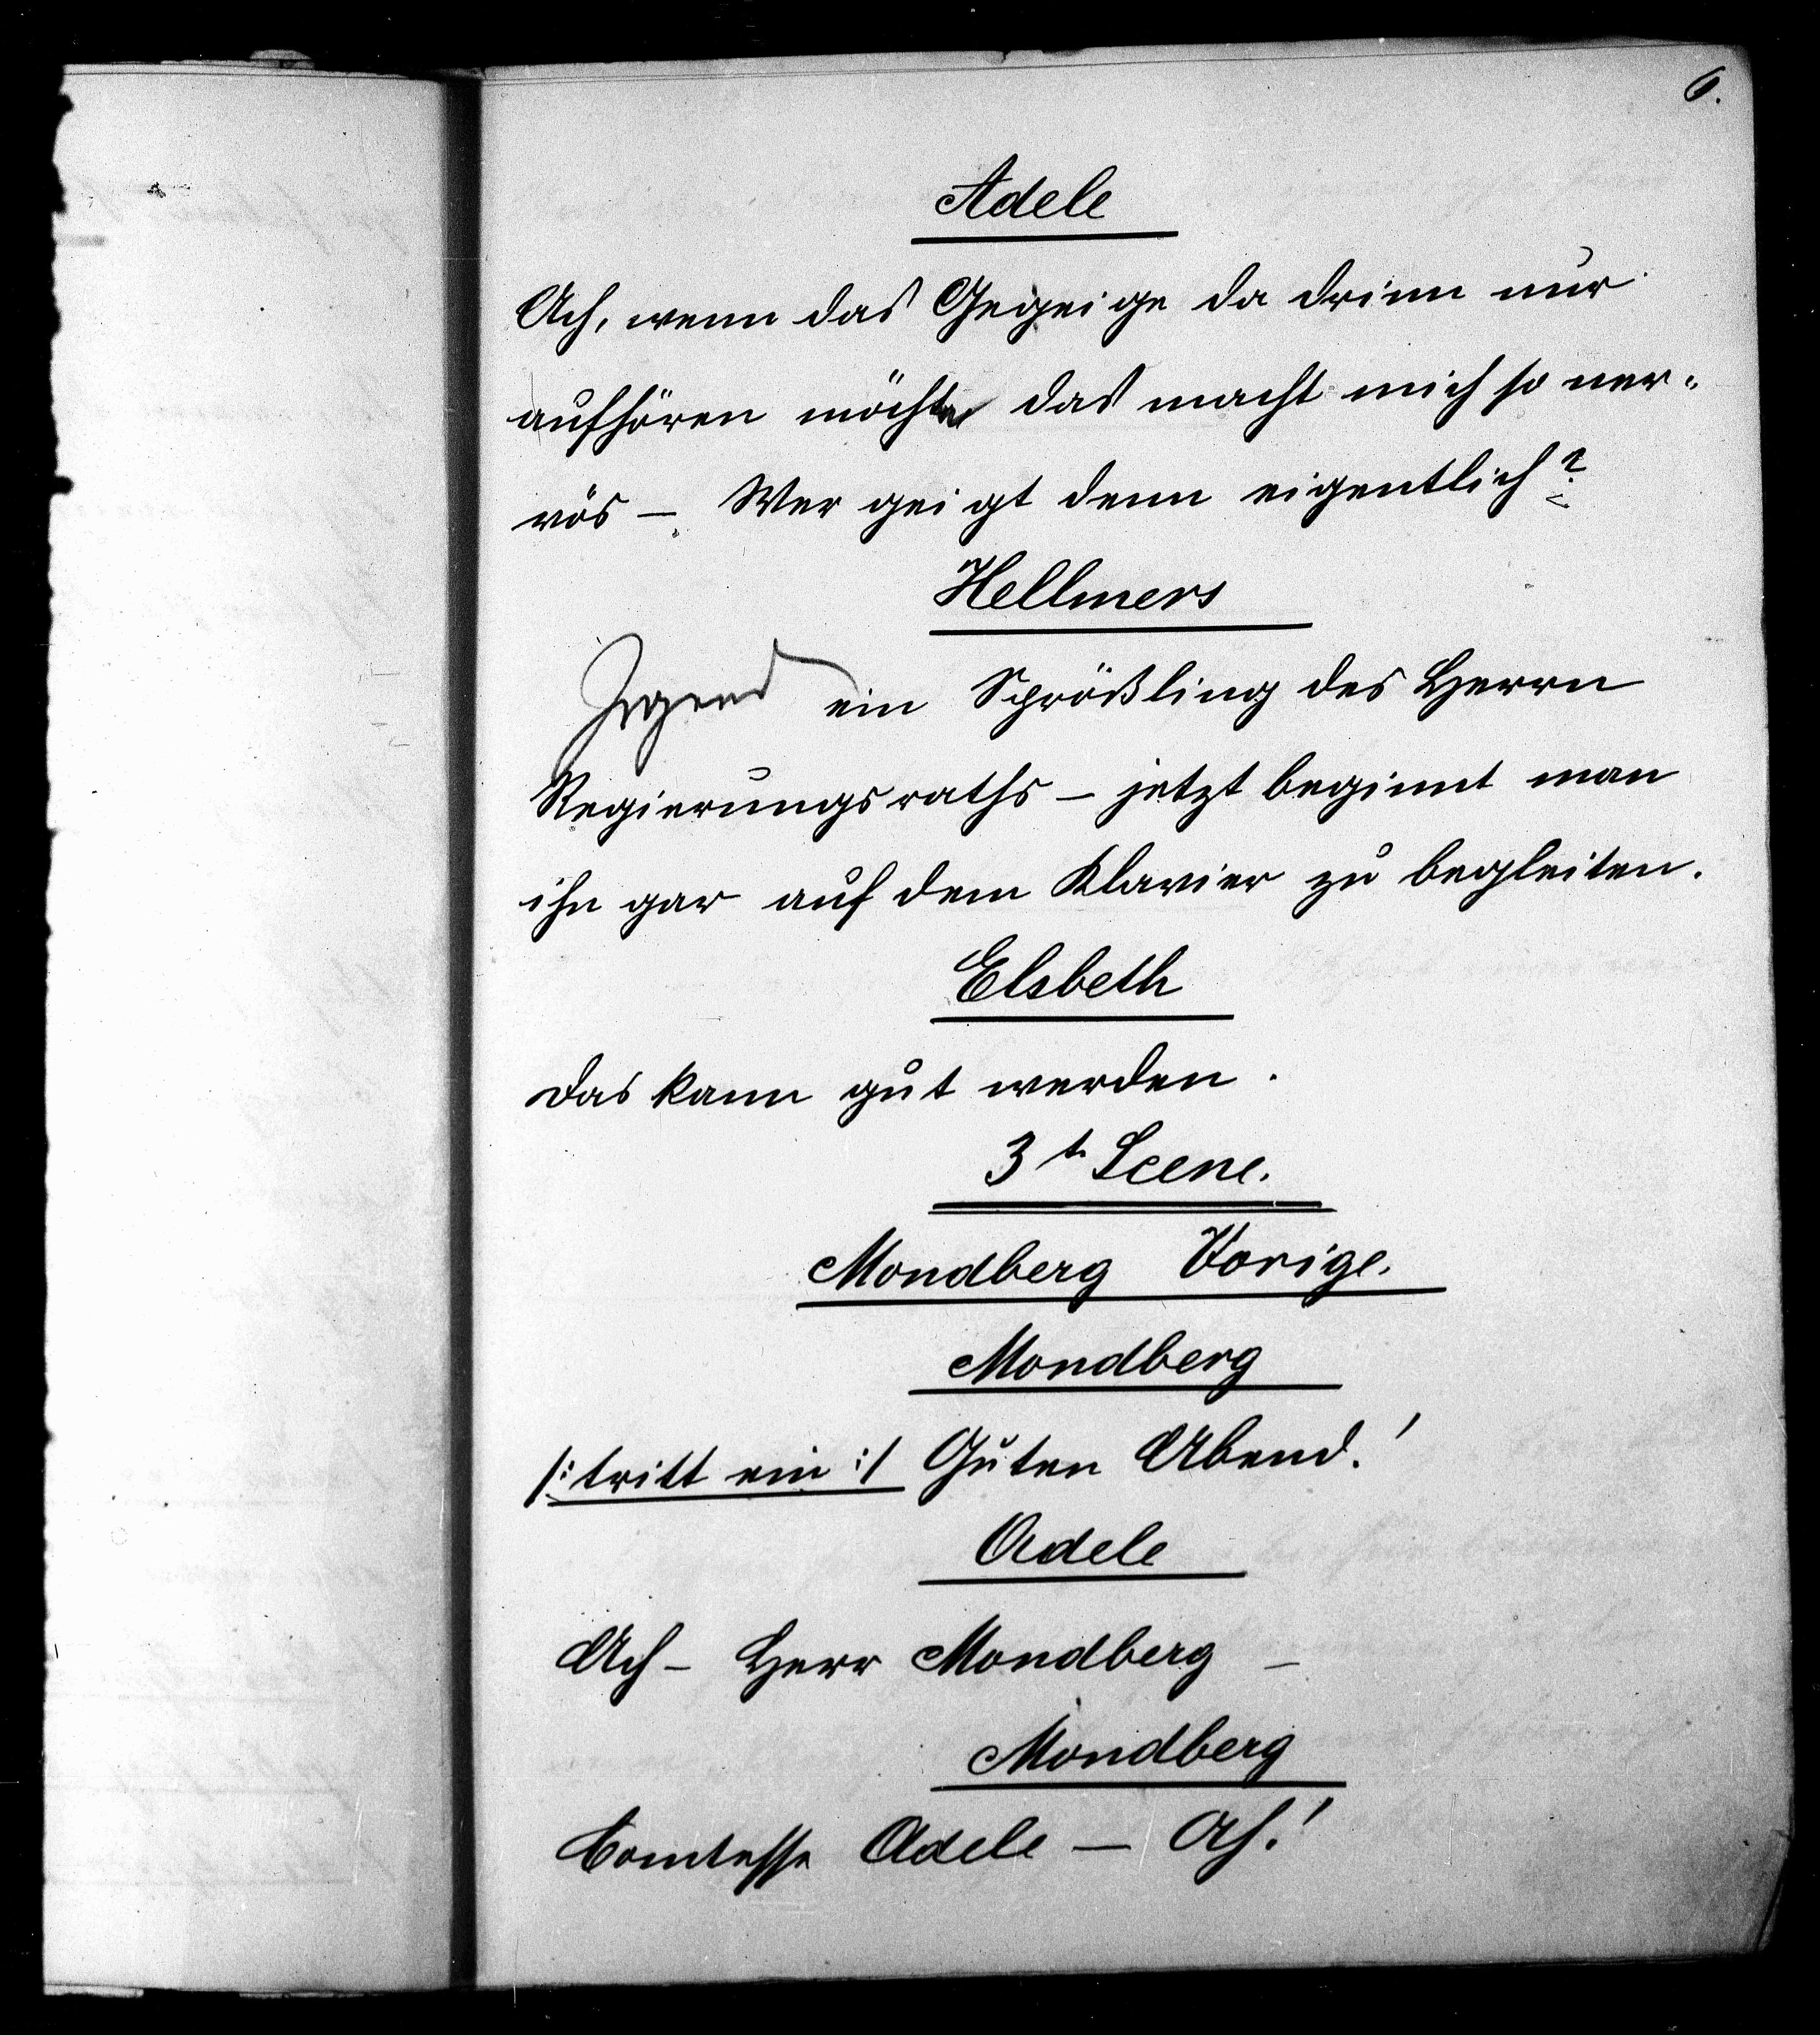 6.
Adele
Ach, wenn das Gegeige da drinn nur
aufhören möchte das macht mich so ner-
vös – Wer geigt denn eigentlich?
Hellmers
Irgend ein Sprößling des Herrn
Regierungsraths – jetzt beginnt man
ihn gar auf dem Klavier zu begleiten.
Elsbeth
Das kann gut werden.
3t. Scene.
Mondberg Vorige.
Mondberg
/: tritt ein :/ Guten Abend!
Adele
Ach – Herr Mondberg –
Mondberg
Comtesse Adele – Ah!